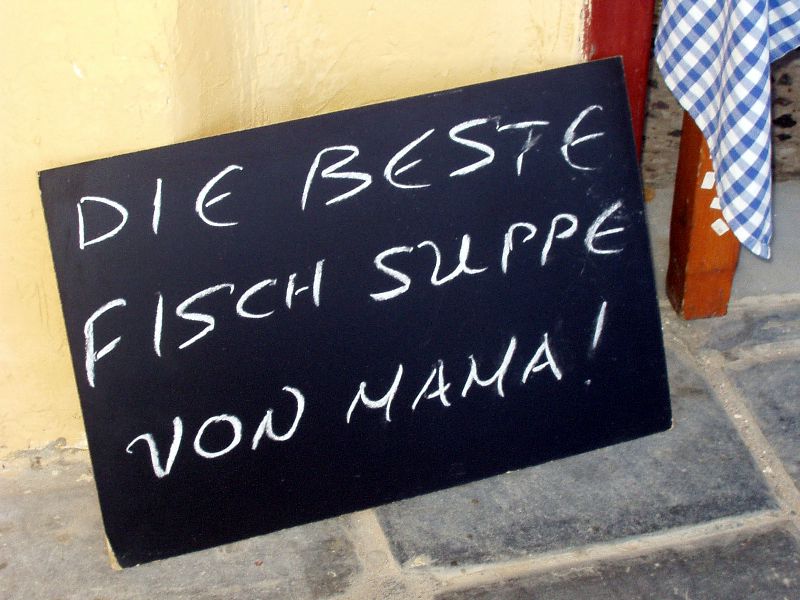 DIE BESTE
FISCH SUPPE
VON MAMA!